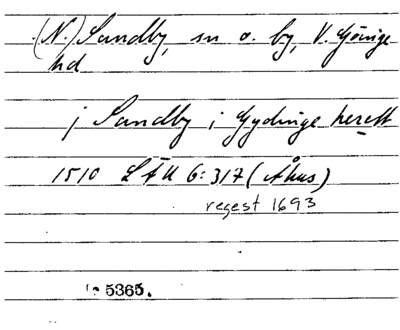 (N.) Sandby, sn o. by, V. Göinge
hd
j Sandby i Gydinge herett
1510 LÄU 6:317 (Åhus)
regest 1693
5365.